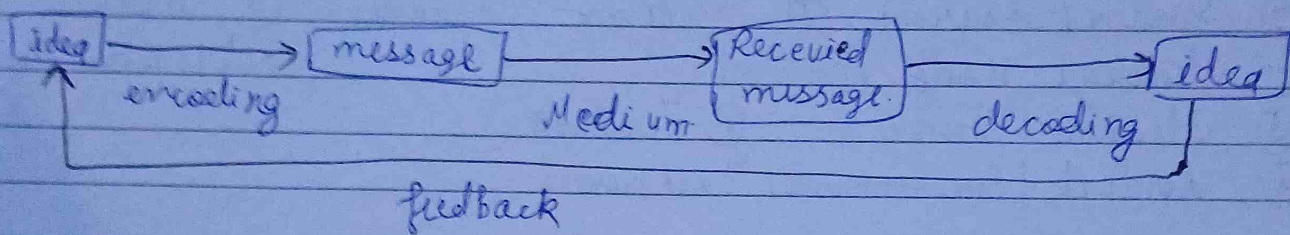 idea
message
Recevied
message.
idea
encoding
Medium
decoding
feedback